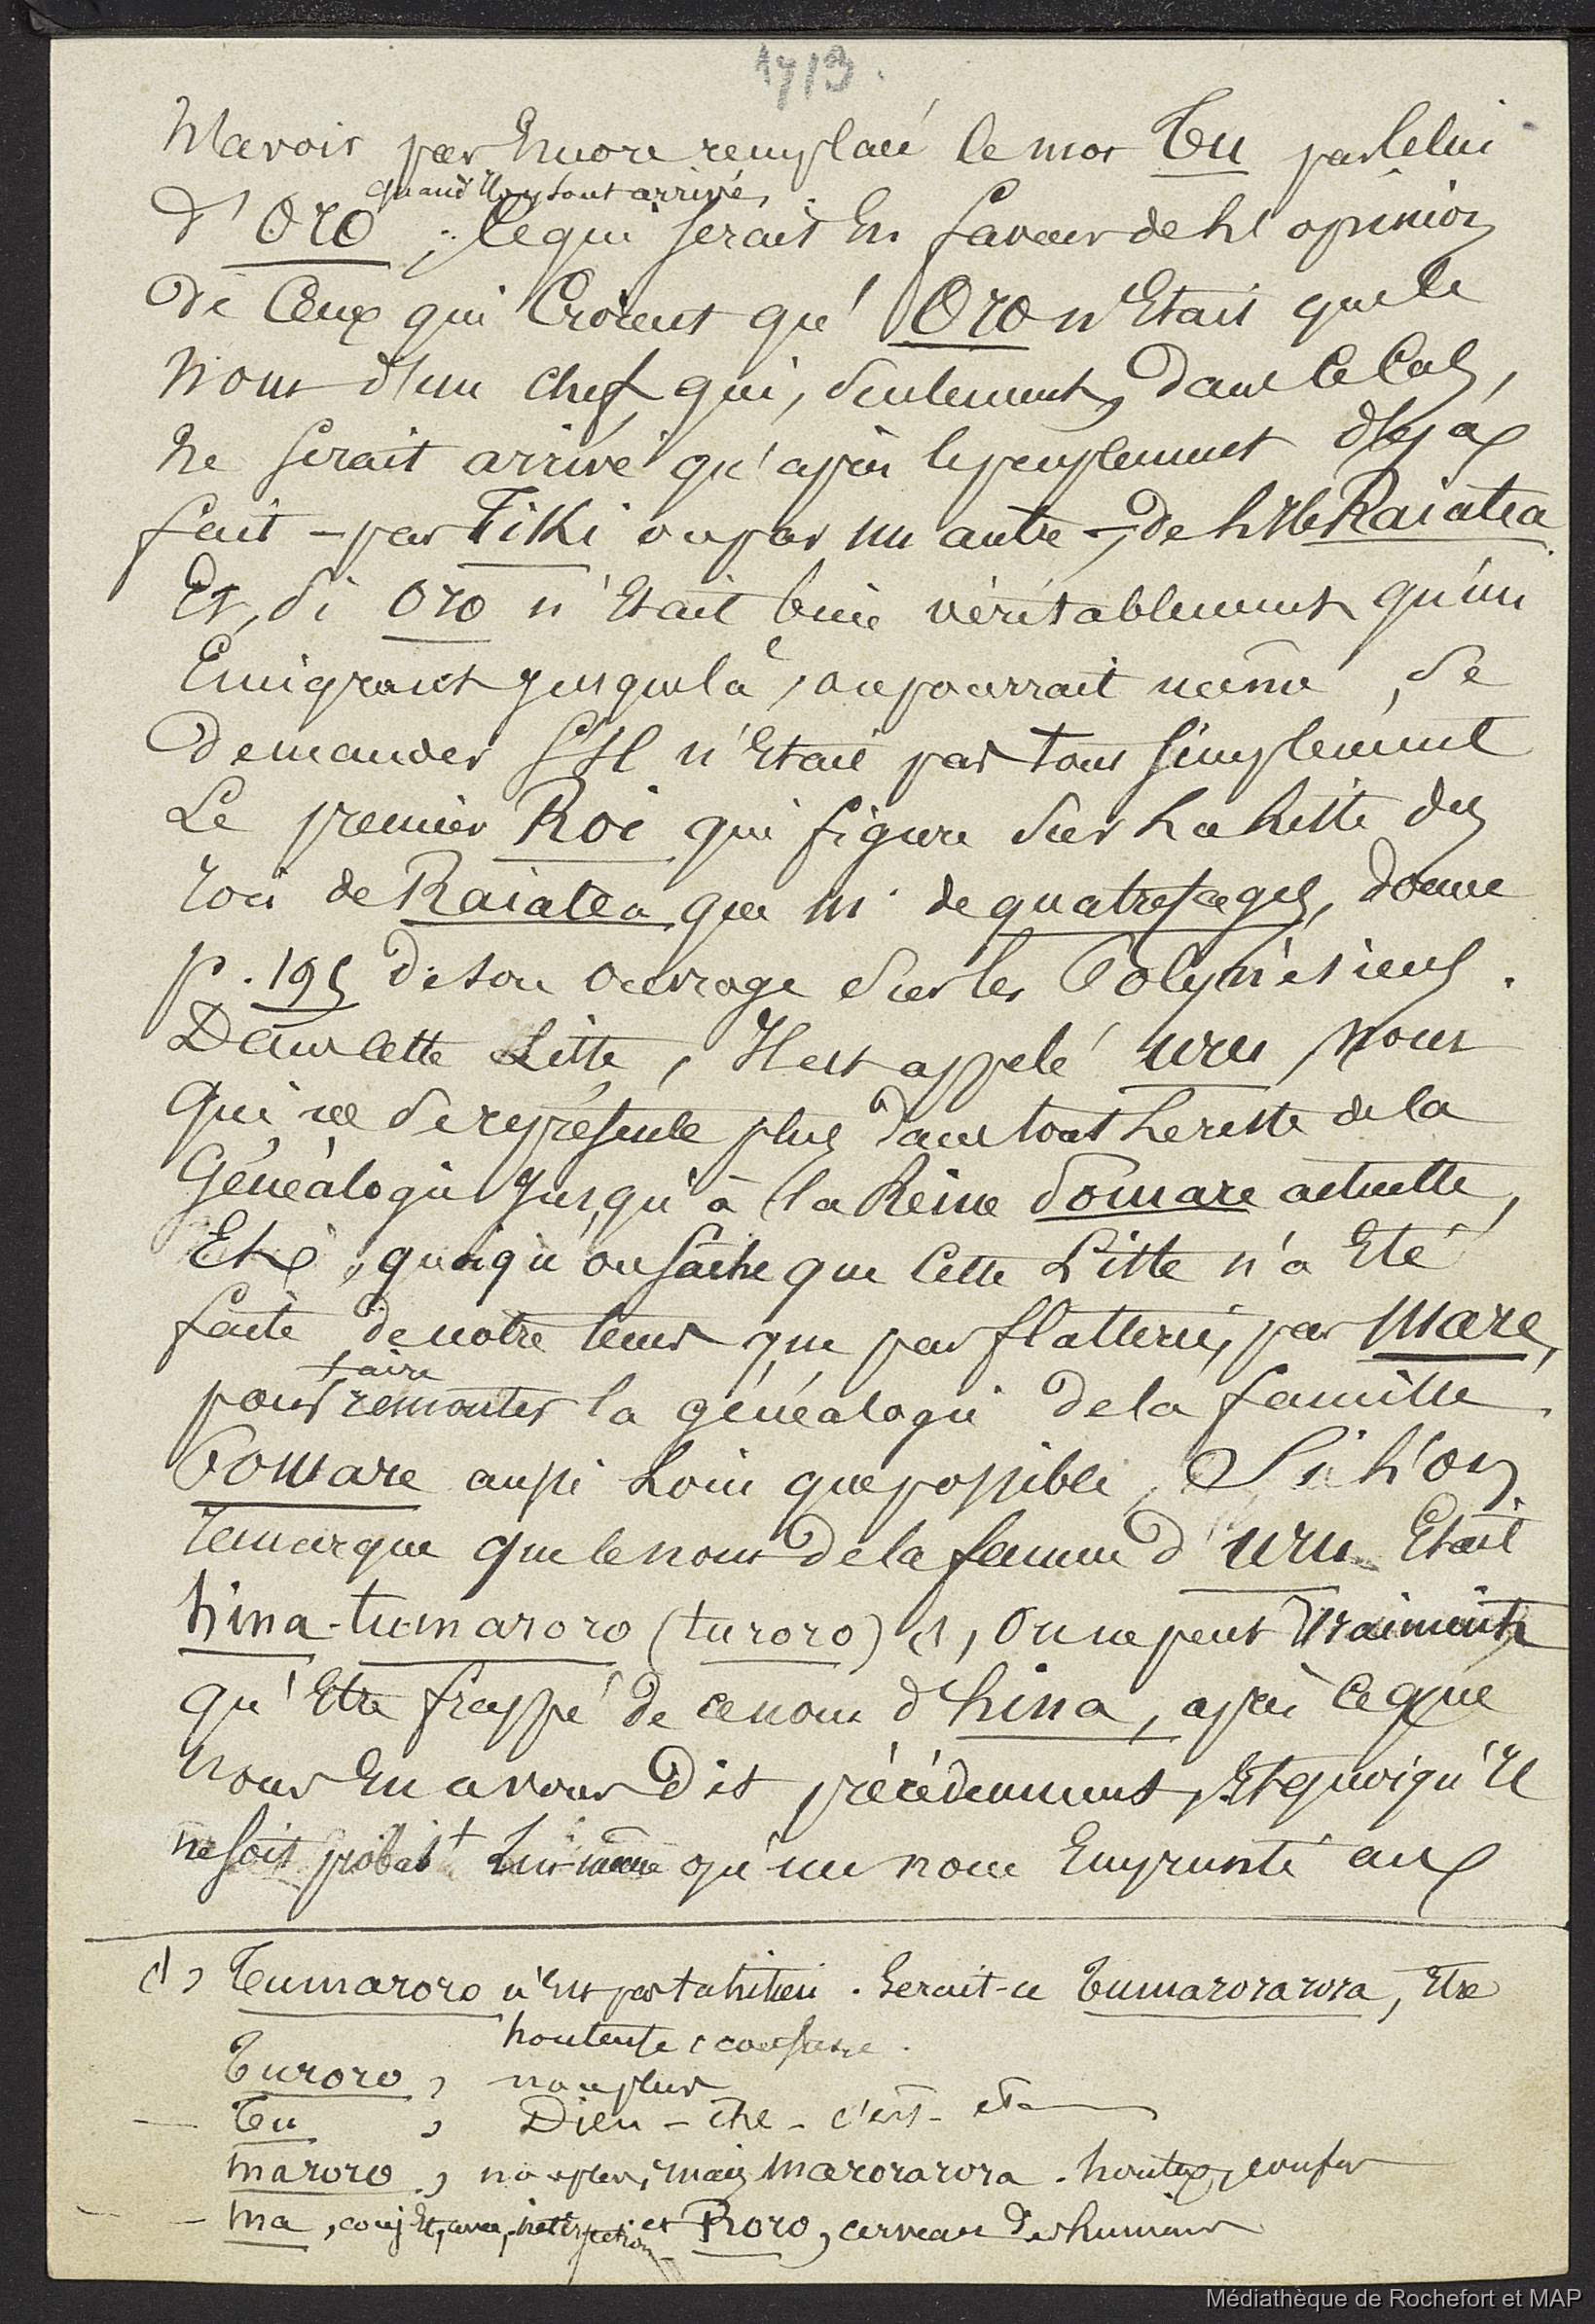 1713.
N'avoir pas Encore remplacé le mot Tu par Celui
quand Ils y sont arrivés,
d'Oro ; Ce qui serait En faveur de L'opinion
de Ceux qui Croient qu'Oro n'Etait que le
Nom d'un chef, qui, seulement, dans Ce Cas,
Ne serait arrivé qu'après le peuplement déjà
fait - par Tiki ou par un autre -, de L'Ile Raiatea.
Et, si Oro n'Etait bien véritablement qu'un
Emigrant jusque là, on pourrait même, se
demander s'Il n'Etait pas tout simplement
Le premier Roi qui figure sur La Liste des
rois de Raiatea que M. de quatrefages, donne
p. 195 de son ouvrage sur les Polynésiens.
Dans cette Liste, Il est appelé uru, Nom
Qui ne se représente plus dans tout Le reste de la
Généalogie jusqu'à la Reine Pomare actuelle,
Et, quoiqu'on sache que Cette Liste n'a Eté
faite de notre tems que par flatterie, par Mare,
faire
pour remonter la généalogie de la famille
Pomare aussi Loin que possible, Si L'on
remarque que le nom de la femme d'uru Etait
hina-tumaroro (turoro) (1, On ne peut Vraiment
qu'Etre frappé de ce nom d'hina, après Ce que
Nous En avons dit précédemment, Et quoiqu'Il
ne soit probabt Lui même qu'un nom Emprunté aux
(1) Tumaroro n'Est pas tahitien. Serait-ce Tumarorarora, Etre
honteuse, confuse.
Turoro, non plus
- Tu, Dieu - être - c'est - etc
maroro, non plus, mais marorarora. honteux, confus
- ma, conj Et, avec, interjection et Roro, cerveau des humains
Médiathèque de Rochefort et MAP